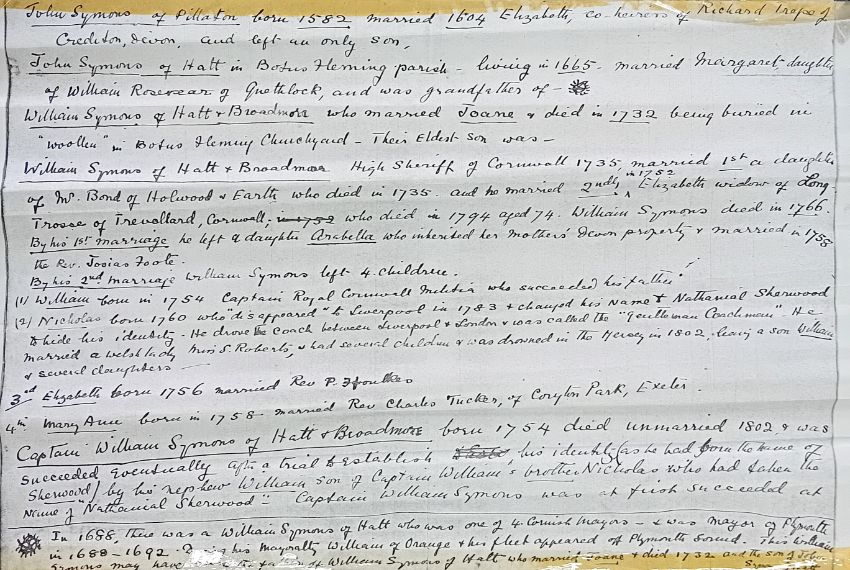 John Symons of Pillaton born 1582 married 1604 Elizabeth, co-heiress of Richard Trese of
Crediton, Devon, and left an only son,
John Symons of Hatt in Botus Fleming parish - living in 1665 - married Margaret, daughter
of William Rosevear of and was grandfather of -
William Symons of Hatt & Broadmore who married Joane & died in 1732 being buried in
"woollen" in Botus Fleming Churchyard - Their Eldest Son was -
William Symons of Hatt & Broadmore High Sheriff of Cornwall 1735 married 1st a daughter
of Mr. Bond of Holwood & Earth who died in 1735. and he married 2ndly in 1752 Elizabeth widow of Long-
Trosse of Trevollard, Cornwall, in 1752 who died in 1794 aged 74. William Symons died in 1766.
By his 1st marriage he left a daughter Arabella who inherited her mothers Devon property & married in 1753
the Rev. Josias Foote.
By his 2nd marriage William Symons left 4 children.
(1) William born in 1754 Captain Royal Cornwall Militia who succeeded his father
(2) Nicholas born 1760 who "disappeared" to Liverpool in 1783 & changed his name to Nathanial Sherwood
to hide his identity - He drove the coach between Liverpool & London & was called the "Gentleman Coachman" He
married a Welsh lady Miss S. Roberts, & had several children & was drowned in the Mersey in 1802, leaving a son William
& several daughters
3rd Elizabeth born 1756 married Rev P. Ffoulkes
4th Mary Ann born in 1758 - married Rev Charles Tucker, of Coryton Park, Exeter.
Captain William Symons of Hatt & Broadmore born 1754 died unmarried 1802 & was
succeeded eventually after a trial to establish his identity (as he had born the name of
Sherwood) by his nephew William son of Captain William's brother Nicholas who had taken the
name of "Nathanial Sherwood" Captain William Symons was at first succeeded at
In 1688, there was a William Symons of Hatt who was one of 4 Cornish Mayors - & was mayor of Plymouth
in 1688-1692. During his Mayoralty William of Orange & his fleet appeared off Plymouth Sound. This William
Symons may have the father of William Symons of Hatt who married Joane & died 1732 and the son of John